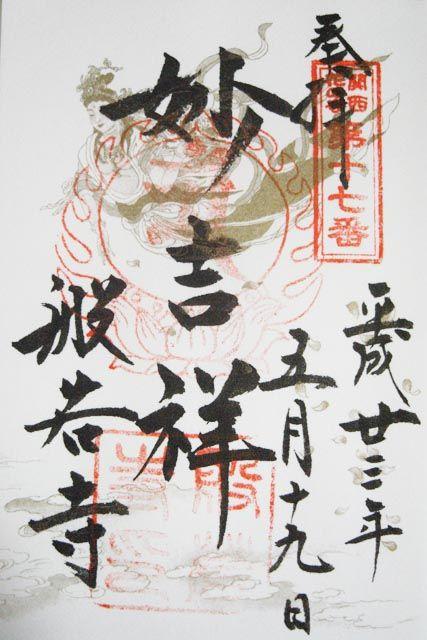 奉拝
関西花の寺第十七番
平成廿三年
五月十九日
妙吉祥
般若寺